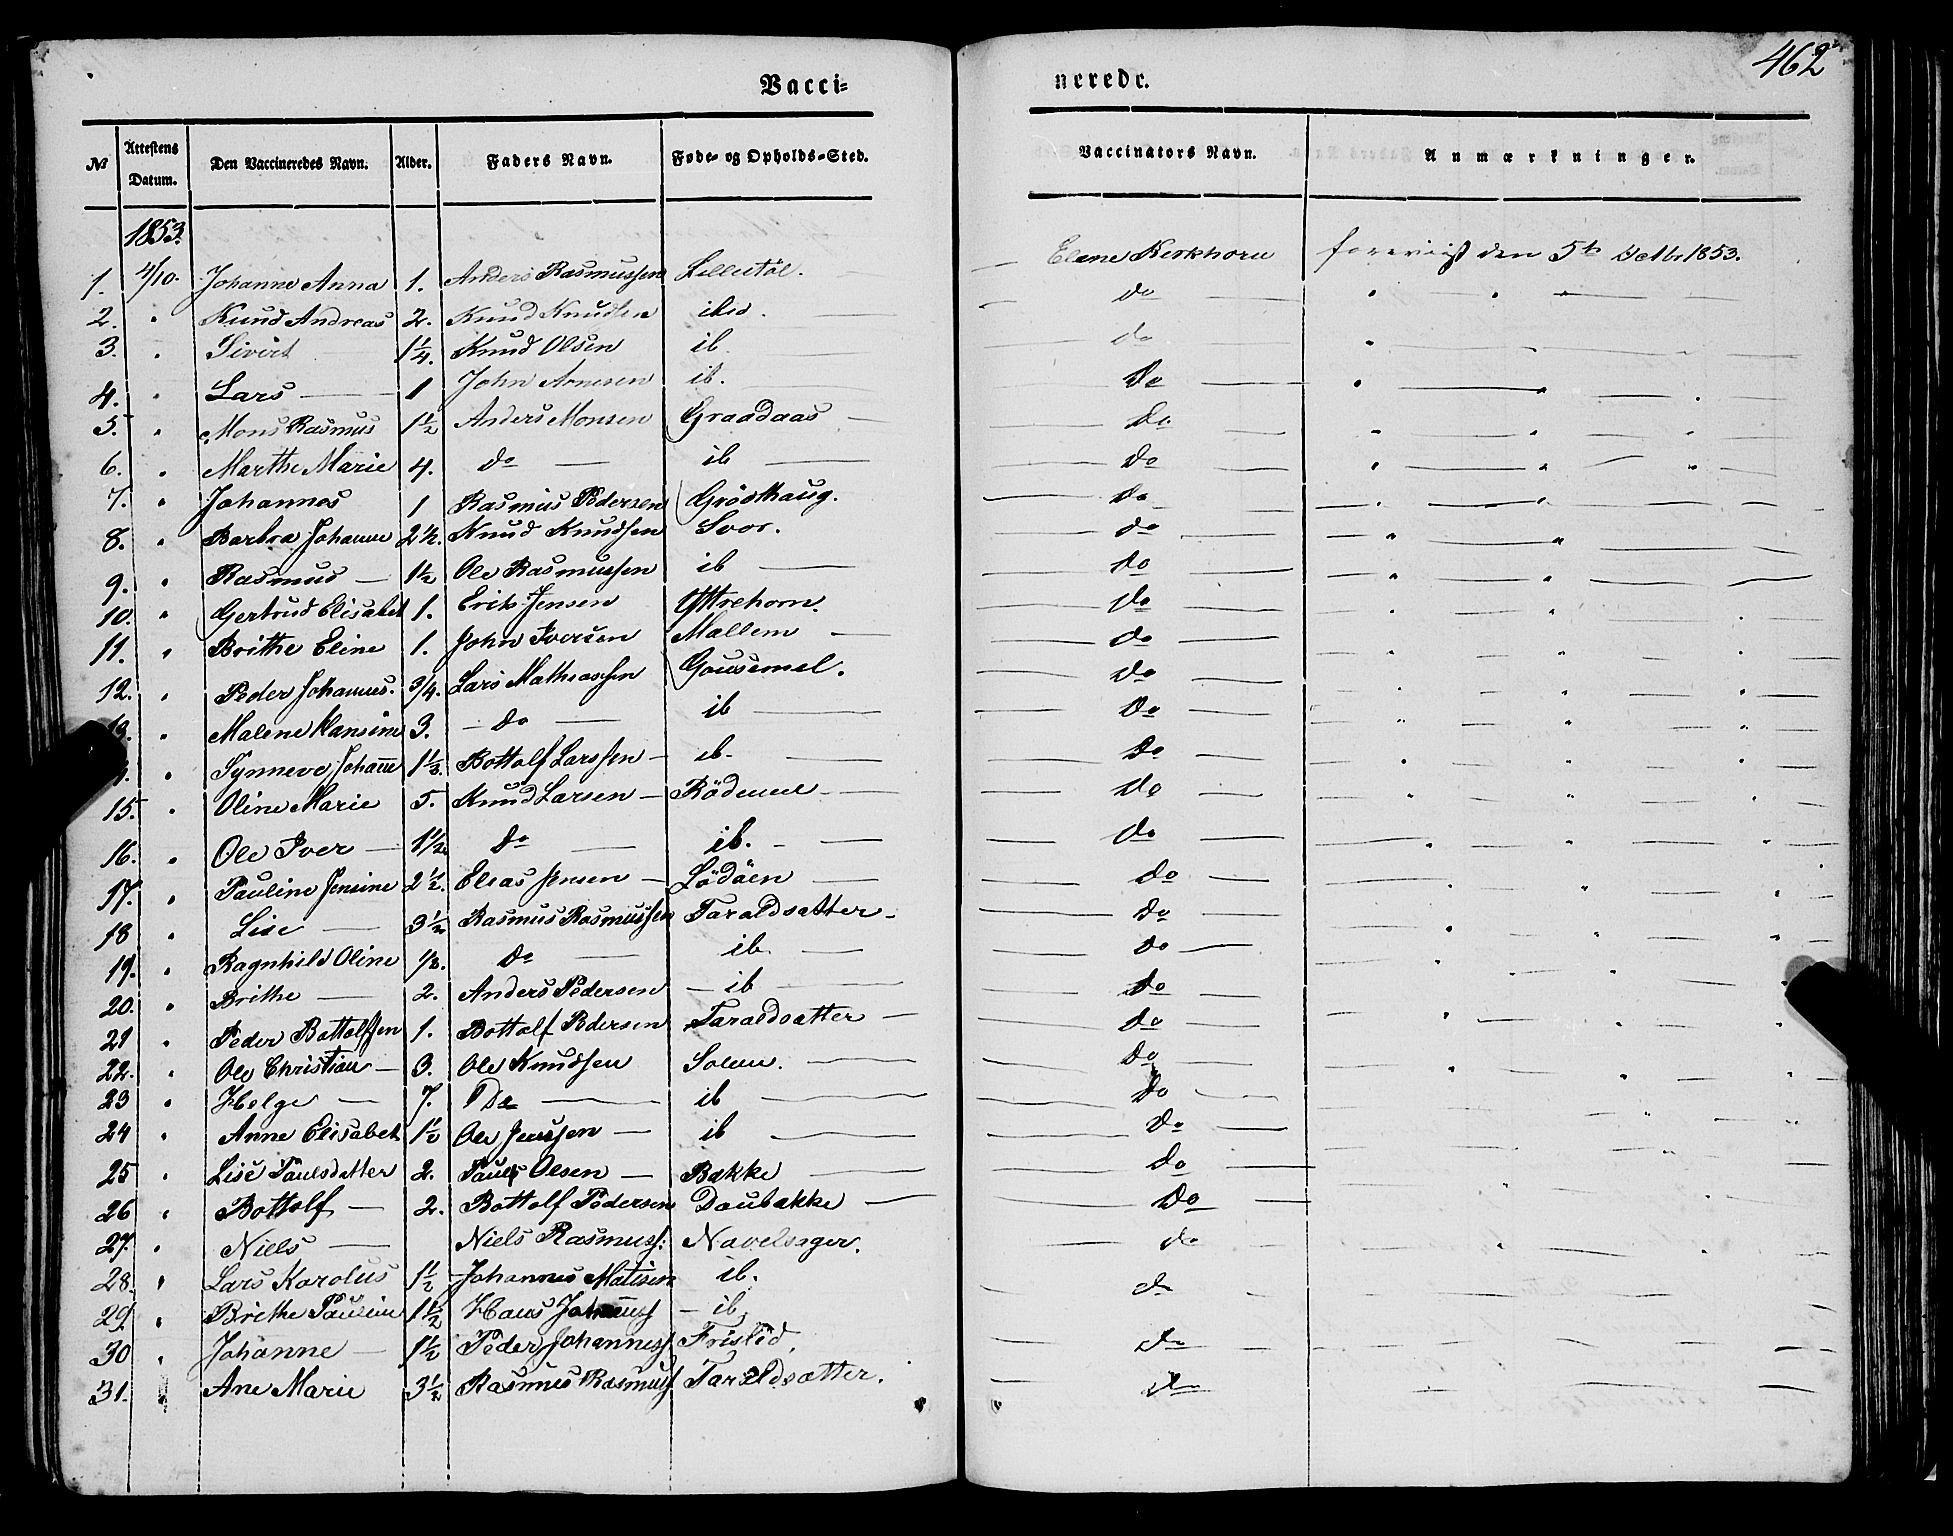 462
Vaccinerede.
№ Attestens Datum. Den Vaccineredes Navn. Alder. Faders Navn. Føde- og Opholds-Sted. Vaccinators Navn. Anmærkninger.
1853.
1. 4/10. Johanne Anna 1. Anders Rasmussen Lilletöl. Elene Kerkhorn foreviist den 5te Octbr 1853.
2. " Knud Andreas 2. Knud Knudsen ibid. do " "
3. " Sivert 1¼. Knud Olsen ib. do " "
4. " Lars 1 John Arnesen ib. Do " "
5. " Mons Rasmus 1½ Anders Monsen Graadaas Do. " "
6. " Marthe Marie 4. do ib do " "
7. " Johannes 1 Rasmus Pedersen Gröskaug. do " "
8. " Barbra Johanne 2½. Knud Knudsen Svor. do " "
9. " Rasmus 1½ Ole Rasmussen ib do " "
10. " Gertrud Elisabet 1. Erik Jensen Yttrehorn. do " "
11. " Brithe Eline 1. John Iversen Mallem do " "
12. " Peder Johannes. 3/4. Lars Mathiassen do " "
13. " Malene Hansine 3. do ib Do " "
" Synneve Johanne 1⅓. Bottolf Larssen ib. Do " "
15. " Oline Marie 5. Knud Larsen do " "
16. " Ole Iver 1½ do ib. do " "
17. " Pauline Jensine 2½. Elias Jensen Lödöen do " "
18 " Lise 3½ Rasmus Rasmussen Taraldsætter do " "
19. " Ragnhild Oline do ib. do " "
20. " Brithe 2. Anders Pedersen ib do " "
21 " Peder Bottolfsen 1. Bottolf Pedersen Taraldsætter do " "
22. " Ole Christian 3. Ole Knudsen Solem. do " "
23 " Helge 7. Do ib do
24 " Anne Elisabet 1½ Ole Jenssen ib do
25 " Lise Paulsdatter 2. Paul Olsen Bakke do
26 " Bottolf 2. Bottolf Pedersen Daubakke Do
27. " Niels Niels Rasmuss: Navelsager. do
28. " Lars Karolus 1½ Johannes Matisen ib. do
29. " Brithe Pauline 1½ Hans Johanness ib. 
30 " Johanne 1½ Peder Johanness Frislid. do
31. " Ane Marie 3½ Rasmus Rasmuss Taraldsætter. do